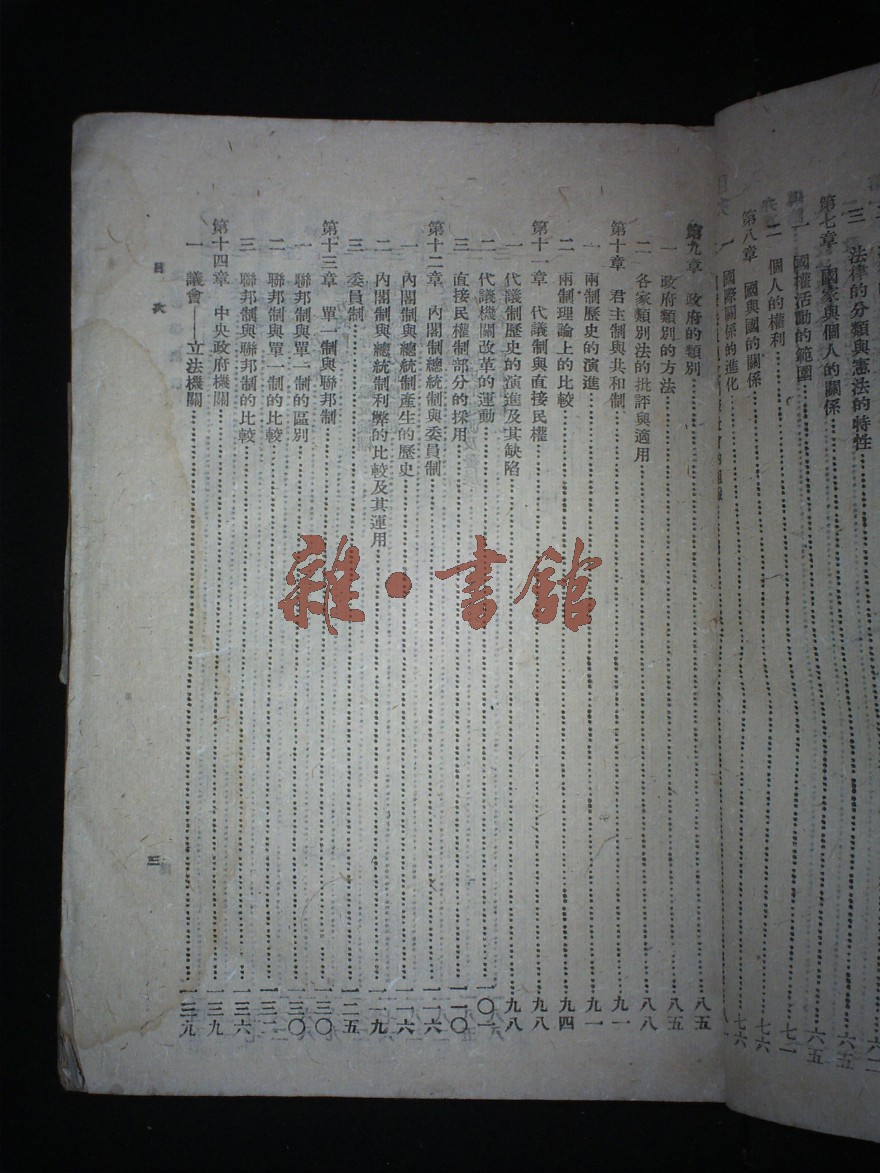 三 法律的分類與憲法的特性
第七章 國家與個人的關係 六五
一 國權活動的範圍 六五
二 個人的權利 七一
第八章 國與國的關係 七六
一 國際關係的進化 七六
第九章 政府的類別 八五
一 政府類別的方法 八五
二 各家類別法的批評與適用 八八
第十章 君主制與共和制 九一
一 兩制歷史的演進 九一
二 兩制理論上的比較 九四
第十一章 代議制與直接民權 九八
一 代議制歷史的演進及其缺陷 九八
二 代議機關改革的運動 一〇一
三 直接民權制部分的採用 一一〇
第十二章 內閣制總統制與委員制 一一六
一 內閣制與總統制產生的歷史 一一六
二 內閣制與總統制利弊的比較及其運用 一一九
三 委員制 一二五
第十三章 單一制與聯邦制 一三〇
一 聯邦制與單一制的區別 一三〇
二 聯邦制與單一制的比較 一三二
三 聯邦制與聯邦制的比較 一三六
第十四章 中央政府機關 一三九
一 議會——立法機關 一三九
目次
三
雜·書館